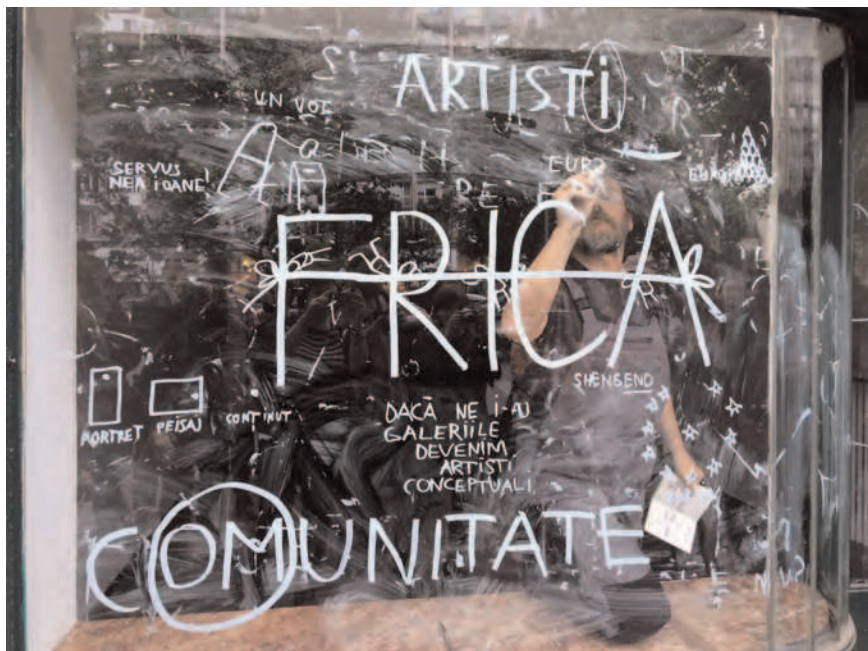 ARTISTi
UN VOT
SERVUS
NEA IOANE!
DE
FRICA
SHENGEND
PORTRET PEISAJ CONTINUT
DACĂ NE I-AU
GALERIILE
DEVENIM
ARTISTI
CONCEPTUALI
COMUNITATE